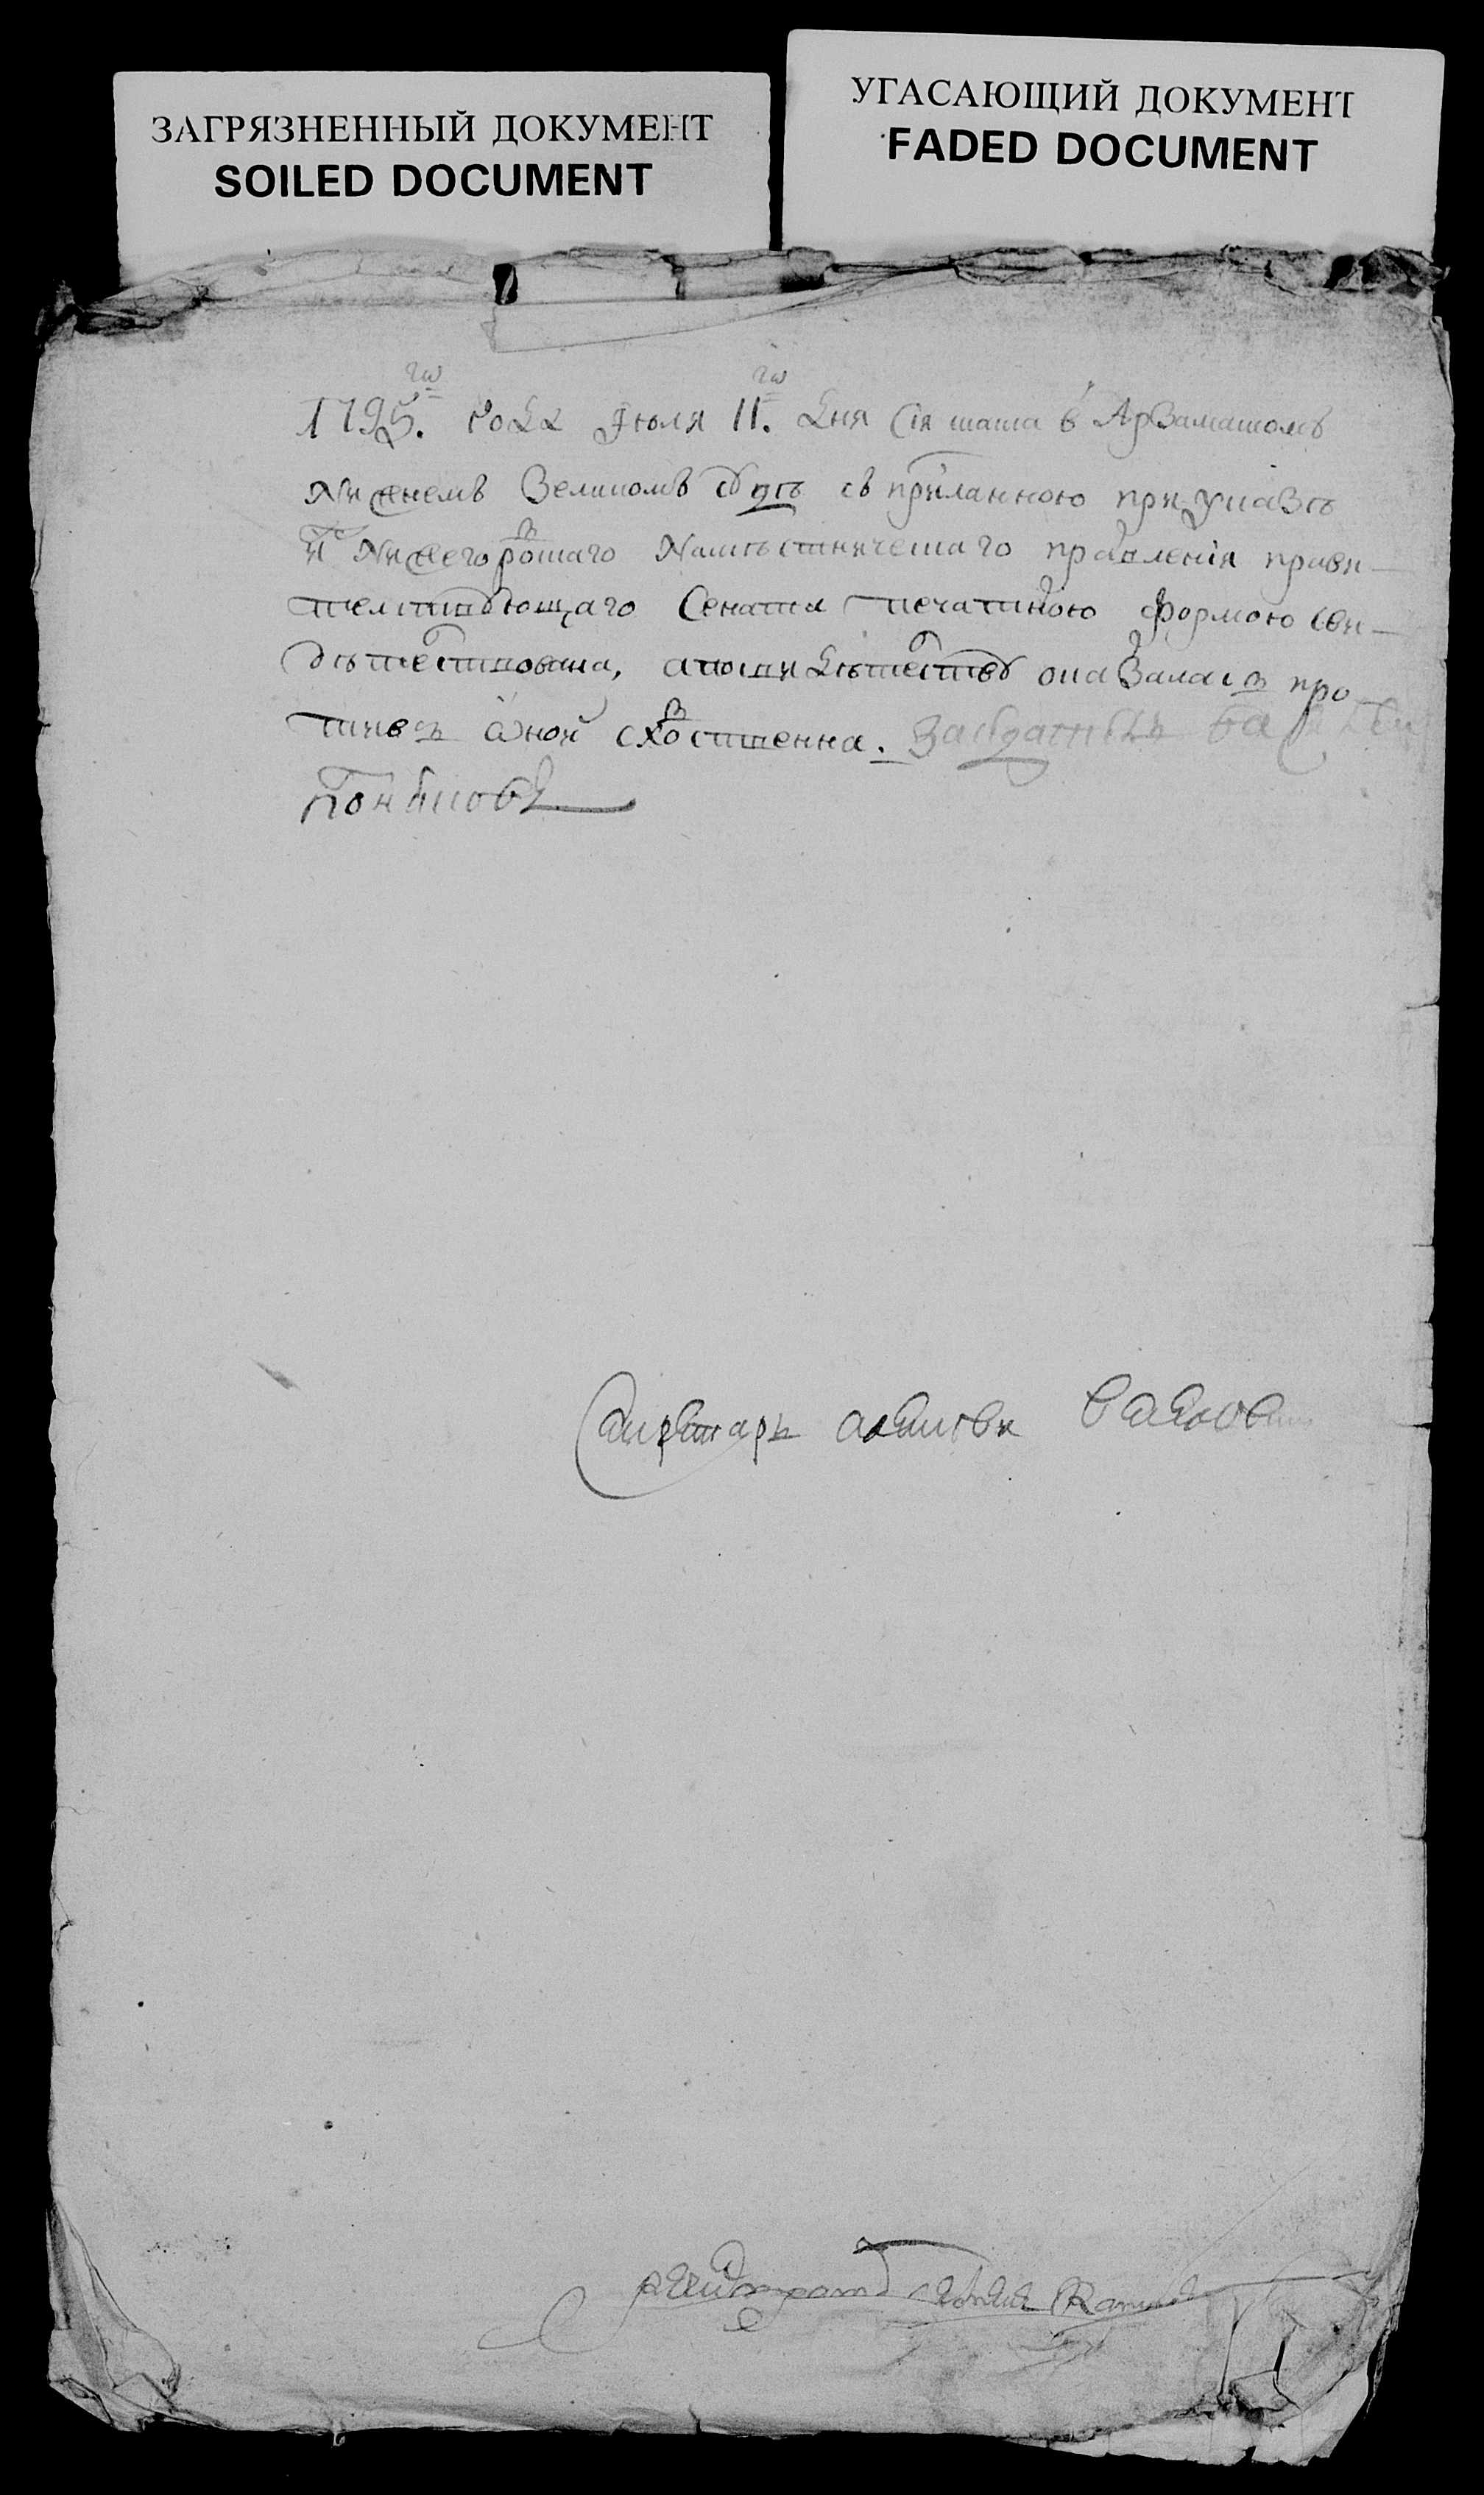 ЗАГРЯЗНЕННЫЙ ДОКУМЕНТ
SOILED DOCUMENT
УГАСАЮЩИЙ ДОКУМЕНТ
FADED DOCUMENT
1795.го года Июля 11.го дня сія скаска в Арзамаском
Нижнемъ Земском суде съ присланною при указѣ
из Нижегородскаго Наместническаго правленія прави-
телствующаго Сената печатною формою сви-
детелствована, а по свидетелству оказалась про
тивъ оной сходственна. Заседатель
Секретарь